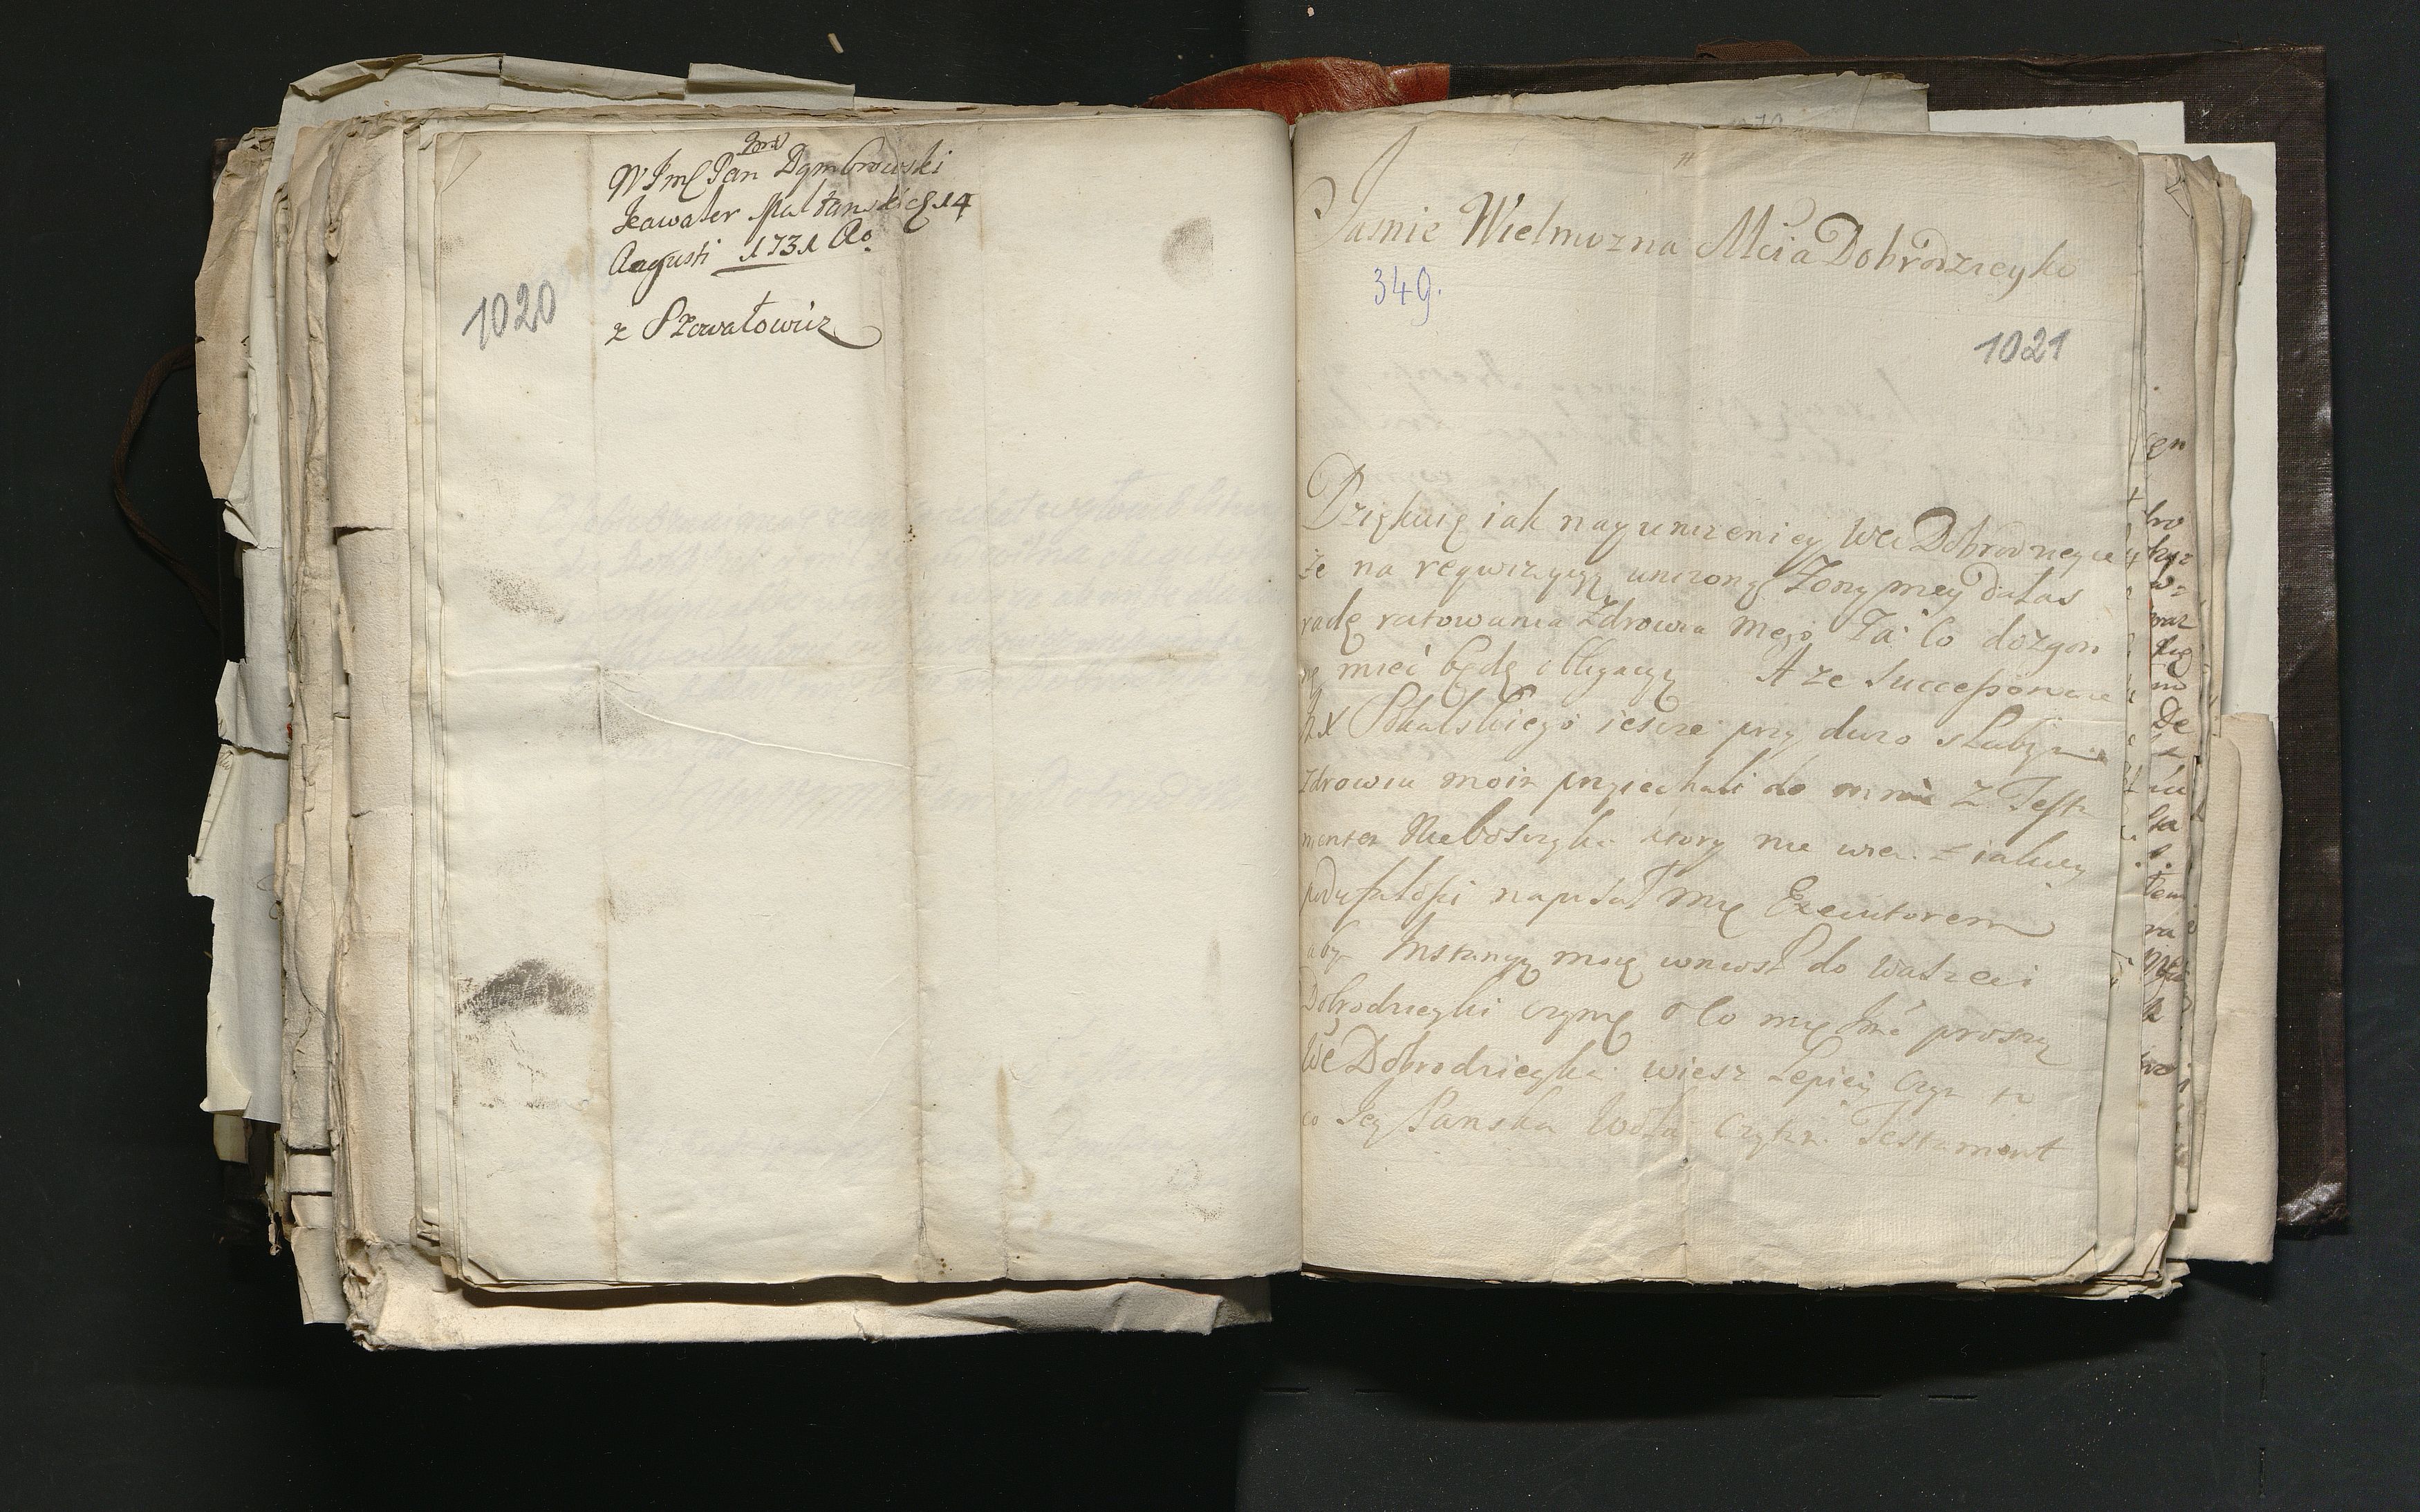 W Jmć Pan Dąmbrowski
Kawaler Maltanski 14
Augusti 1731 Ao.
z Szawałowicz
1020
Jasnie Wielmozna Mcia Dobrodzieyko
349.
1021
Dziękuię iak nayunizeniey We Dobrodzieyce
że na rekwizycyą unizoną Zony mey dałas
radę ratowania Zdrowia mego Za co dozgon
ną mieć będę obligacyą A ze Successorowie
Skalskiego iescze przy duzo słabym
Zdrowiu moim przyiechali do mnie z Testa
mentem Nieboszczyka ktory nie wiem z iakiey
poduffałosci napisał mię Exekutorem
abym Instancyą moię wniosł do
Dobrodzieyki czynię o co mię proszą
We Dobrodzieyka wiesz Lepiey Czym to
co Jey Panska Wola Czytać Testament